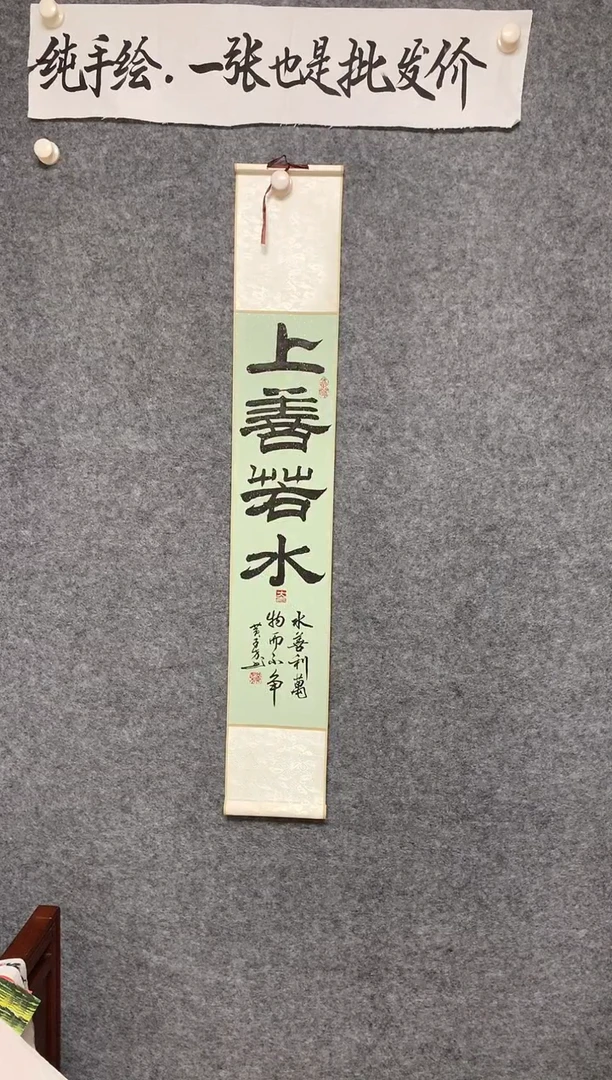 纯手绘.一张也是批发价
上善若水
水善利萬
物而不争